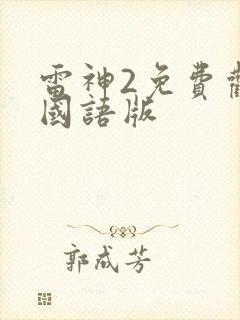 雷神2免費
國語版
郭成芳